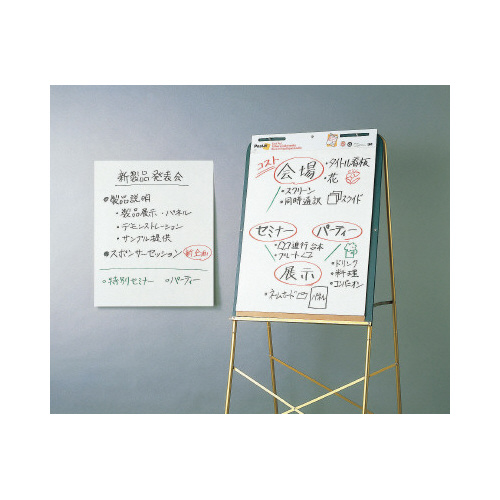 新製品発表会
●製品説明
・製品展示・パネル
・デモンストレーション
・サンプル提供
●スポンサーセッション 新企画
○特別セミナー ○パーティー
Post-it
コスト
会場
・タイトル看板
・花
・スクリーン
・同時通訳
スライド
セミナー
パーティー
・ロゴ進行台本
・ドリンク
・料理
・コンパニオン
展示
・ネームカード
パネル